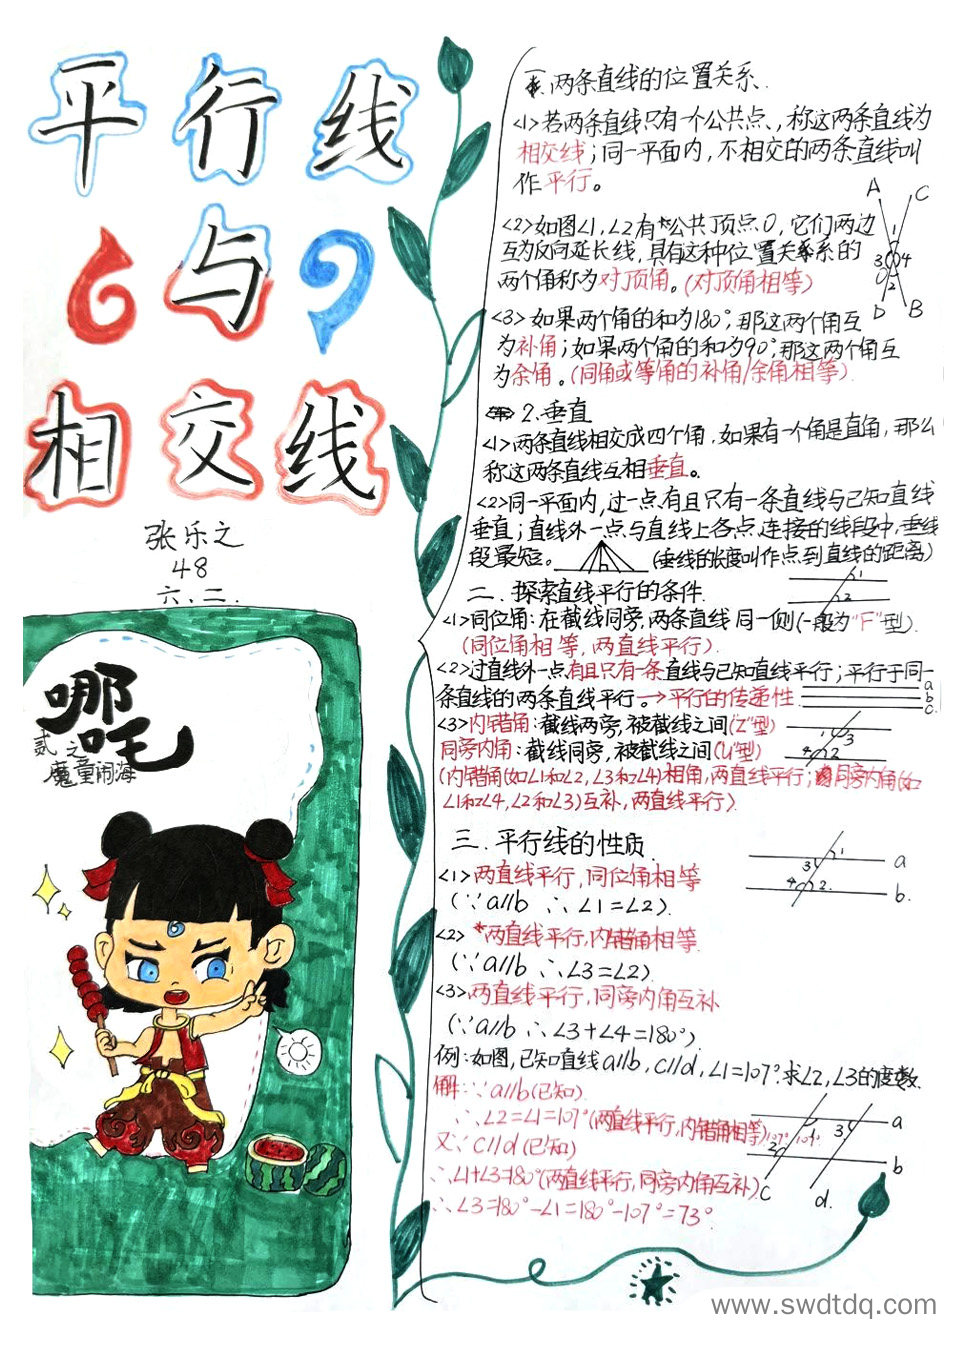 平行线
与
相交线
张乐之
48
六.二.
哪吒
贰 之
魔童闹海
一.两条直线的位置关系.
<1>若两条直线只有一个公共点,称这两条直线为
相交线;同一平面内,不相交的两条直线叫
作平行。
<2>如图∠1,∠2有公共顶点O,它们两边
互为反向延长线,具有这种位置关系的
两个角称为对顶角。(对顶角相等)
A C
1
3 4
O
2
D B
<3>如果两个角的和为180°,那这两个角互
为补角;如果两个角的和为90°,那这两个角互
为余角。(同角或等角的补角/余角相等).
2.垂直
<1>两条直线相交成四个角,如果有一个角是直角,那么
称这两条直线互相垂直。
<2>同一平面内,过一点有且只有一条直线与已知直线
垂直;直线外一点与直线上各点连接的线段中,垂线
段最短。 (垂线的长度叫作点到直线的距离)
二.探索直线平行的条件.
1
2
<1>同位角:在截线同旁,两条直线同一侧(一般为“F”型).
(同位角相等,两直线平行).
<2>过直线外一点有且只有一条直线与已知直线平行;平行于同一
条直线的两条直线平行。→平行的传递性.
a
b
c.
<3>内错角:截线两旁,被截线之间(“Z”型)
同旁内角:截线同旁,被截线之间(“U”型)
1
3
4 2
(内错角(如∠1和∠2,∠3和∠4)相角,两直线平行;同旁内角(如
∠1和∠4,∠2和∠3)互补,两直线平行).
三.平行线的性质.
<1>两直线平行,同位角相等
(∵a//b ∴∠1=∠2).
1
3
4 2.
a
b.
<2>*两直线平行,内错角相等.
(∵a//b ∴∠3=∠2).
<3>两直线平行,同旁内角互补
(∵a//b ∴∠3+∠4=180°)
例:如图,已知直线a//b,c//d,∠1=107°.求∠2,∠3的度数.
解:∵a//b(已知).
∴∠2=∠1=107°(两直线平行,内错角相等)
又∵c//d(已知)
∴∠1+∠3=180°(两直线平行,同旁内角互补)
∴∠3=180°-∠1=180°-107°=73°.
1 3
2
a
b
c d.
www.swdtdq.com